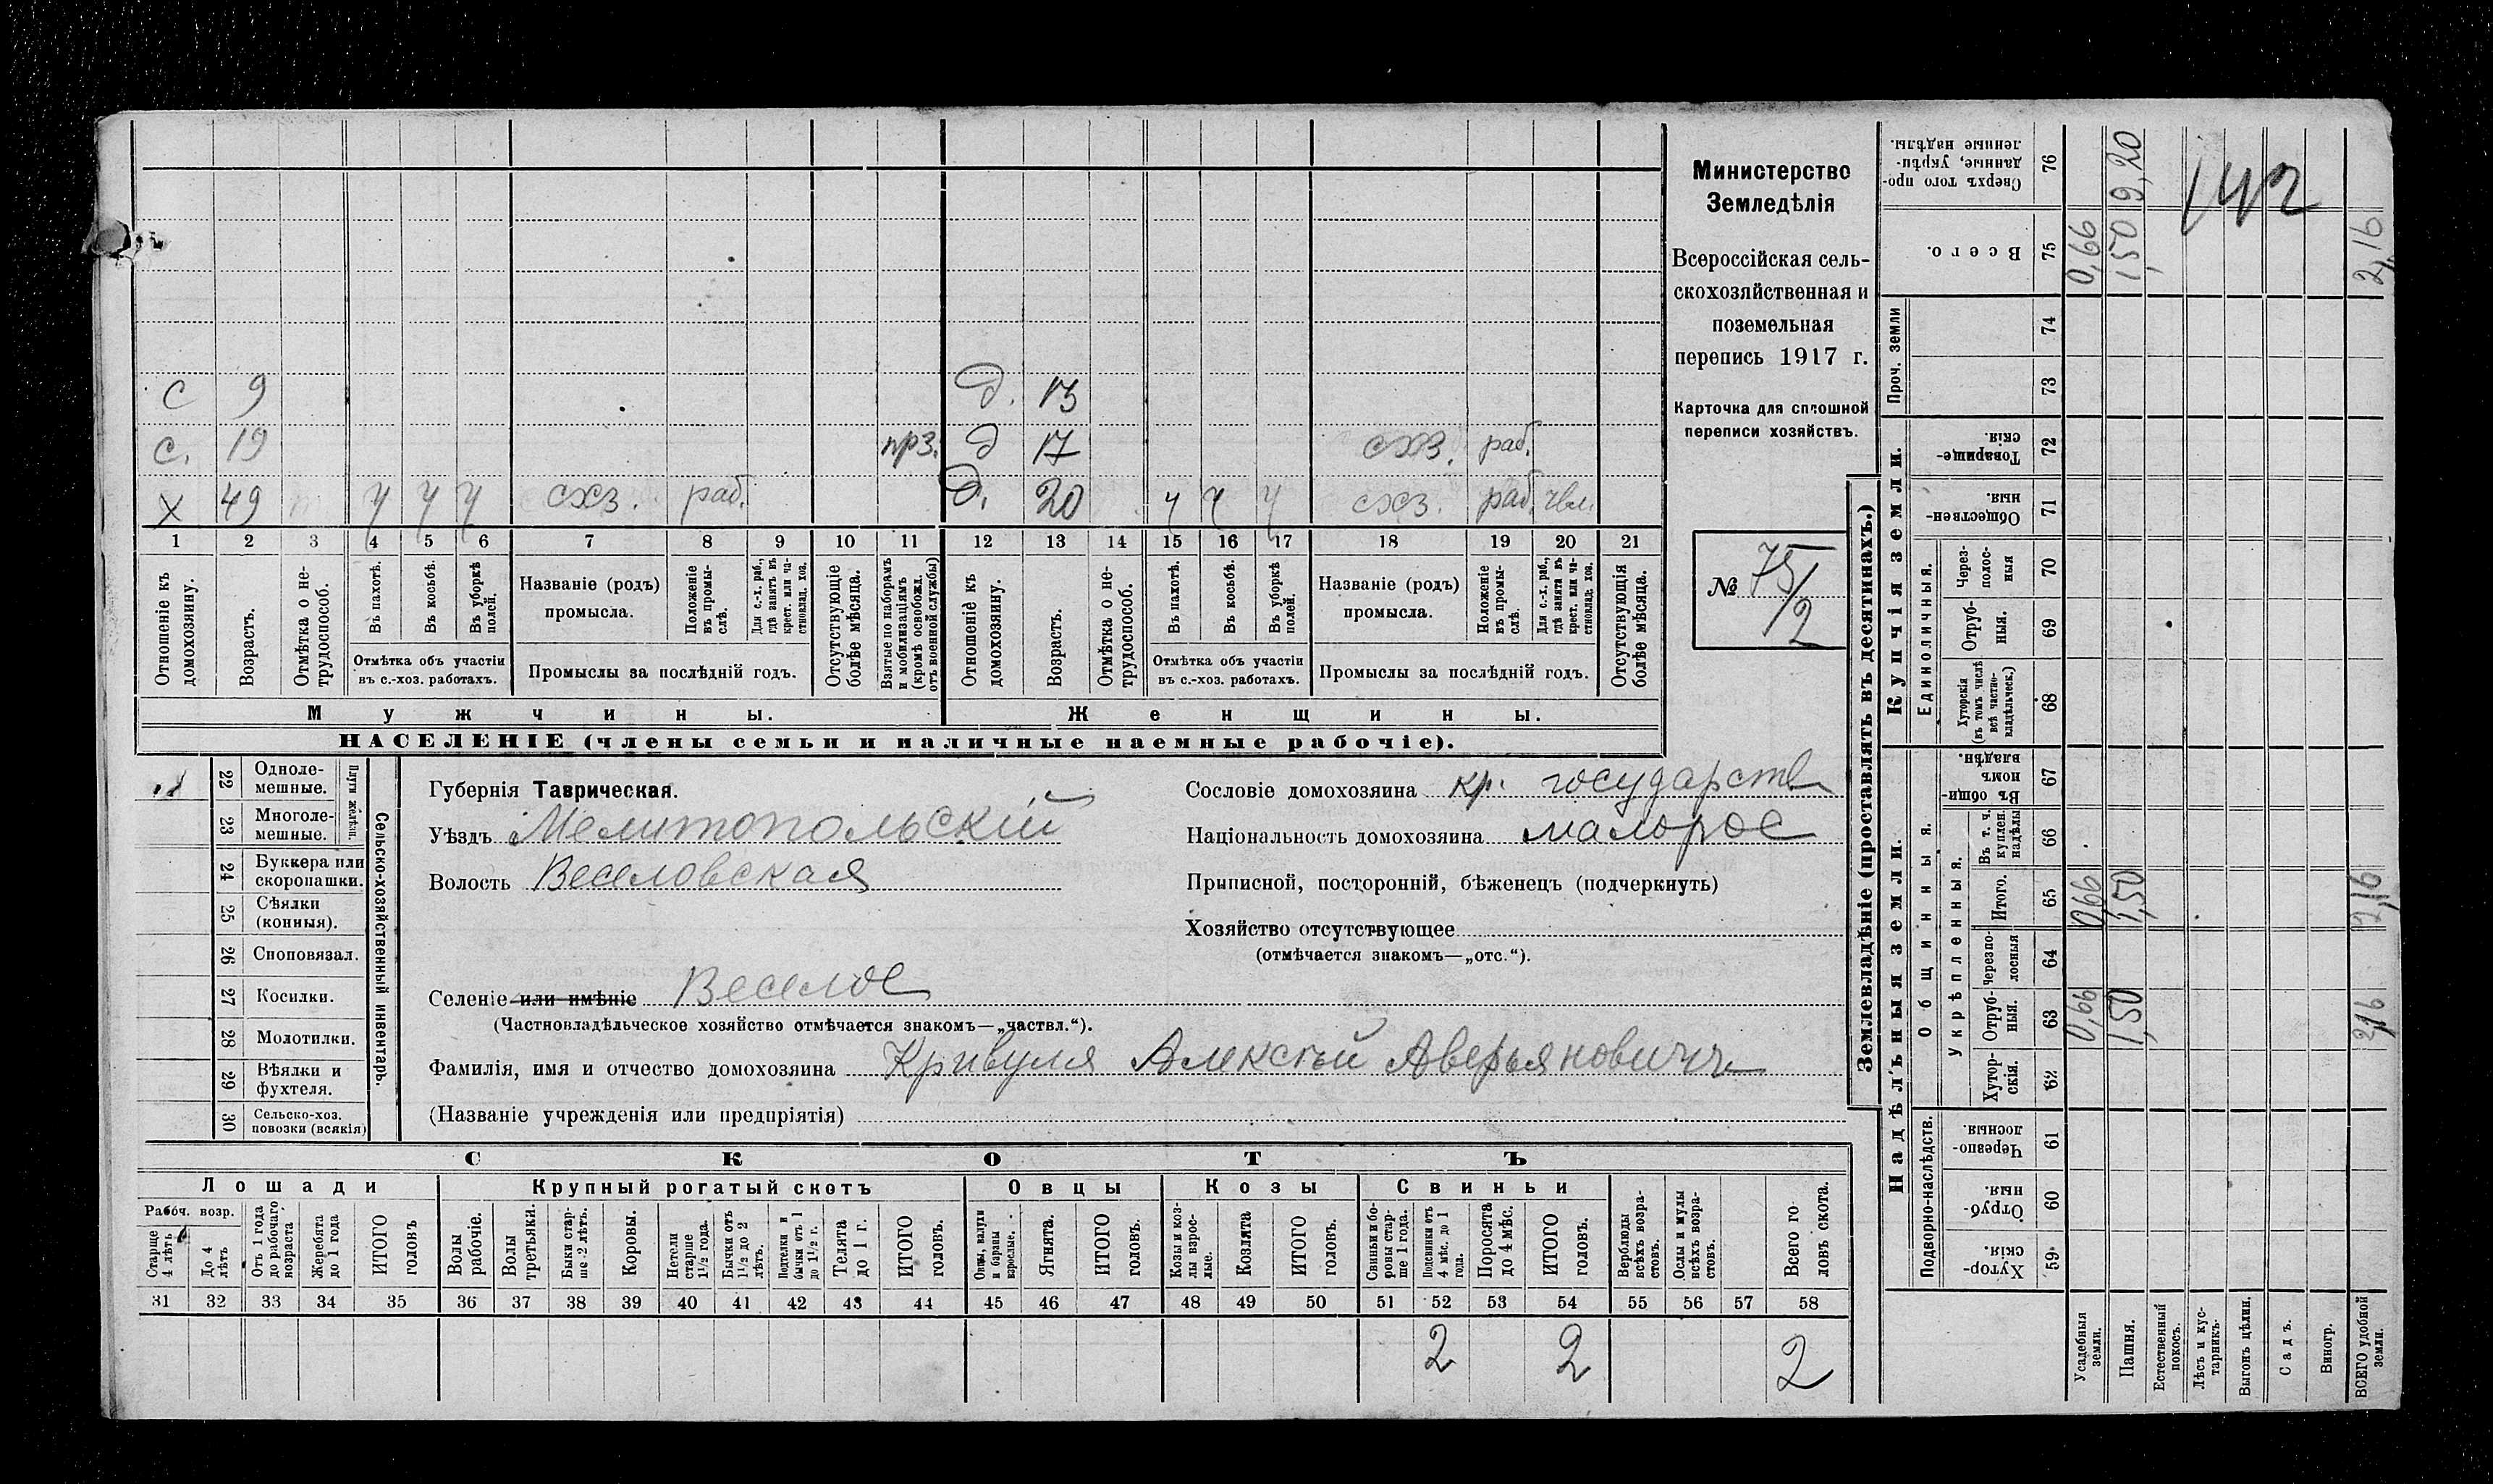 Министерство
Земледѣлія
Всероссійская сель-
скохозяйственная и
поземельная
перепись 1917 г.
Карточка для сплошной
переписи хозяйствъ.
№ 75/2
с 9 д. 13
с. 19 прз. д 17 схз. раб.
х 49 ч ч ч схз. раб. д. 20 ч ч ч схз. раб. чвл.
1 2 3 4 5 6 7 8 9 10 11 12 13 14 15 16 17 18 19 20 21
Отношеніе къ домохозяину.
Возрастъ.
Отмѣтка о не-трудоспособ.
Въ пахотѣ.
Въ косьбѣ.
Въ уборкѣ полей.
Отмѣтка объ участіи
въ с.-хоз. работахъ.
Названіе (родъ)
промысла.
Положеніе въ промы-слѣ.
Для с.-х. раб., гдѣ занятъ въ крест. или ча-стновлад. хоз.
Промыслы за послѣдній годъ.
Отсутствующіе болѣе мѣсяца.
Взятые по наборамъ и мобилизаціямъ (кромѣ освобожд. отъ военной службы)
Отношеніе къ домохозяину.
Возрастъ.
Отмѣтка о не-трудоспособ.
Въ пахотѣ.
Въ косьбѣ.
Въ уборкѣ полей.
Отмѣтка объ участіи
въ с.-хоз. работахъ.
Названіе (родъ)
промысла.
Положеніе въ промы-слѣ.
Для с.-х. раб., гдѣ занята въ крест. или ча-стновлад. хоз.
Промыслы за послѣдній годъ.
Отсутствующія болѣе мѣсяца.
Мужчины. Женщины.
НАСЕЛЕНІЕ (члены семьи и наличные наемные рабочіе).
22 Одноле-мешные.
23 Многоле-мешные.
Плуги желѣзн.
24 Буккера или скоропашки.
25 Сѣялки (конныя).
26 Сноповязал.
27 Косилки.
28 Молотилки.
29 Вѣялки и фухтеля.
30 Сельско-хоз. повозки (всякія)
Сельско-хозяйственный инвентарь.
Губернія Таврическая.
Уѣздъ Мелитопольскій
Волость Веселовская
Сословіе домохозяина кр. государств
Національность домохозяина малорос
Приписной, посторонній, бѣженецъ (подчеркнуть)
Хозяйство отсутствующее
(отмѣчается знакомъ—„отс.“).
Селеніе или имѣніе Веселое
(Частновладѣльческое хозяйство отмѣчается знакомъ—„частвл.“).
Фамилія, имя и отчество домохозяина Кривуля Алексѣй Аверьяновичъ
(Названіе учрежденія или предпріятія)
СКОТЪ
Лошади Крупный рогатый скотъ Овцы Козы Свиньи
Рабоч. возр.
Старше 4 лѣтъ
До 4 лѣтъ
Отъ 1 года до рабочаго возраста
Жеребята до 1 года
ИТОГО головъ
Волы рабочіе.
Волы третьяки.
Быки стар-ше 2 лѣтъ.
Коровы.
Нетели старше 1½ года.
Бычки отъ 1½ до 2 лѣтъ.
Подтелки и бычки отъ 1 до 1½ г.
Телята до 1 г.
ИТОГО головъ.
Овцы, валухи и бараны взрослые.
Ягнята.
ИТОГО головъ.
Козы и коз-лы взрос-лые.
Козлята
ИТОГО головъ.
Свиньи и бо-ровы стар-ше 1 года.
Подсвинки отъ 4 мѣс. до 1 года.
Поросята до 4 мѣс.
ИТОГО головъ.
Верблюды всѣхъ возра-стовъ.
Ослы и мулы всѣхъ возра-стовъ.
Всего го-ловъ скота.
31 32 33 34 35 36 37 38 39 40 41 42 43 44 45 46 47 48 49 50 51 52 53 54 55 56 57 58
2 2 2
Землевладѣніе (проставлять въ десятинахъ.)
Надѣльныя земли. Купчія земли. Проч. земли
Подворно-наслѣдств.
Общинныя.
Укрѣпленныя.
Единоличныя.
Сверхъ того про-данные, укрѣп-ленные надѣлы. 76 9,20
Всего. 75 0,66 1,50 2,16
142
74
73
Товарище-скія. 72
Обществен-ныя. 71
Через-полос-ныя 70
Отруб-ныя. 69
Хуторскія (въ томъ числѣ всѣ частно-владѣльческ.) 68
Въ общин-номъ владѣн. 67
Въ т. ч. куплен. надѣлы 66
Итого. 65 0,66 1,50 2,16
Черезпо-лосныя 64
Отруб-ныя. 63 0,66 1,50 2,16
Хутор-скія. 62
Черезпо-лосныя. 61
Отруб-ныя. 60
Хутор-скія. 59
Усадебныя земли.
Пашня.
Естественный покосъ.
Лѣсъ и кус-тарникъ.
Выгонъ цѣлин.
Садъ.
Виногр.
ВСЕГО удобной земли.